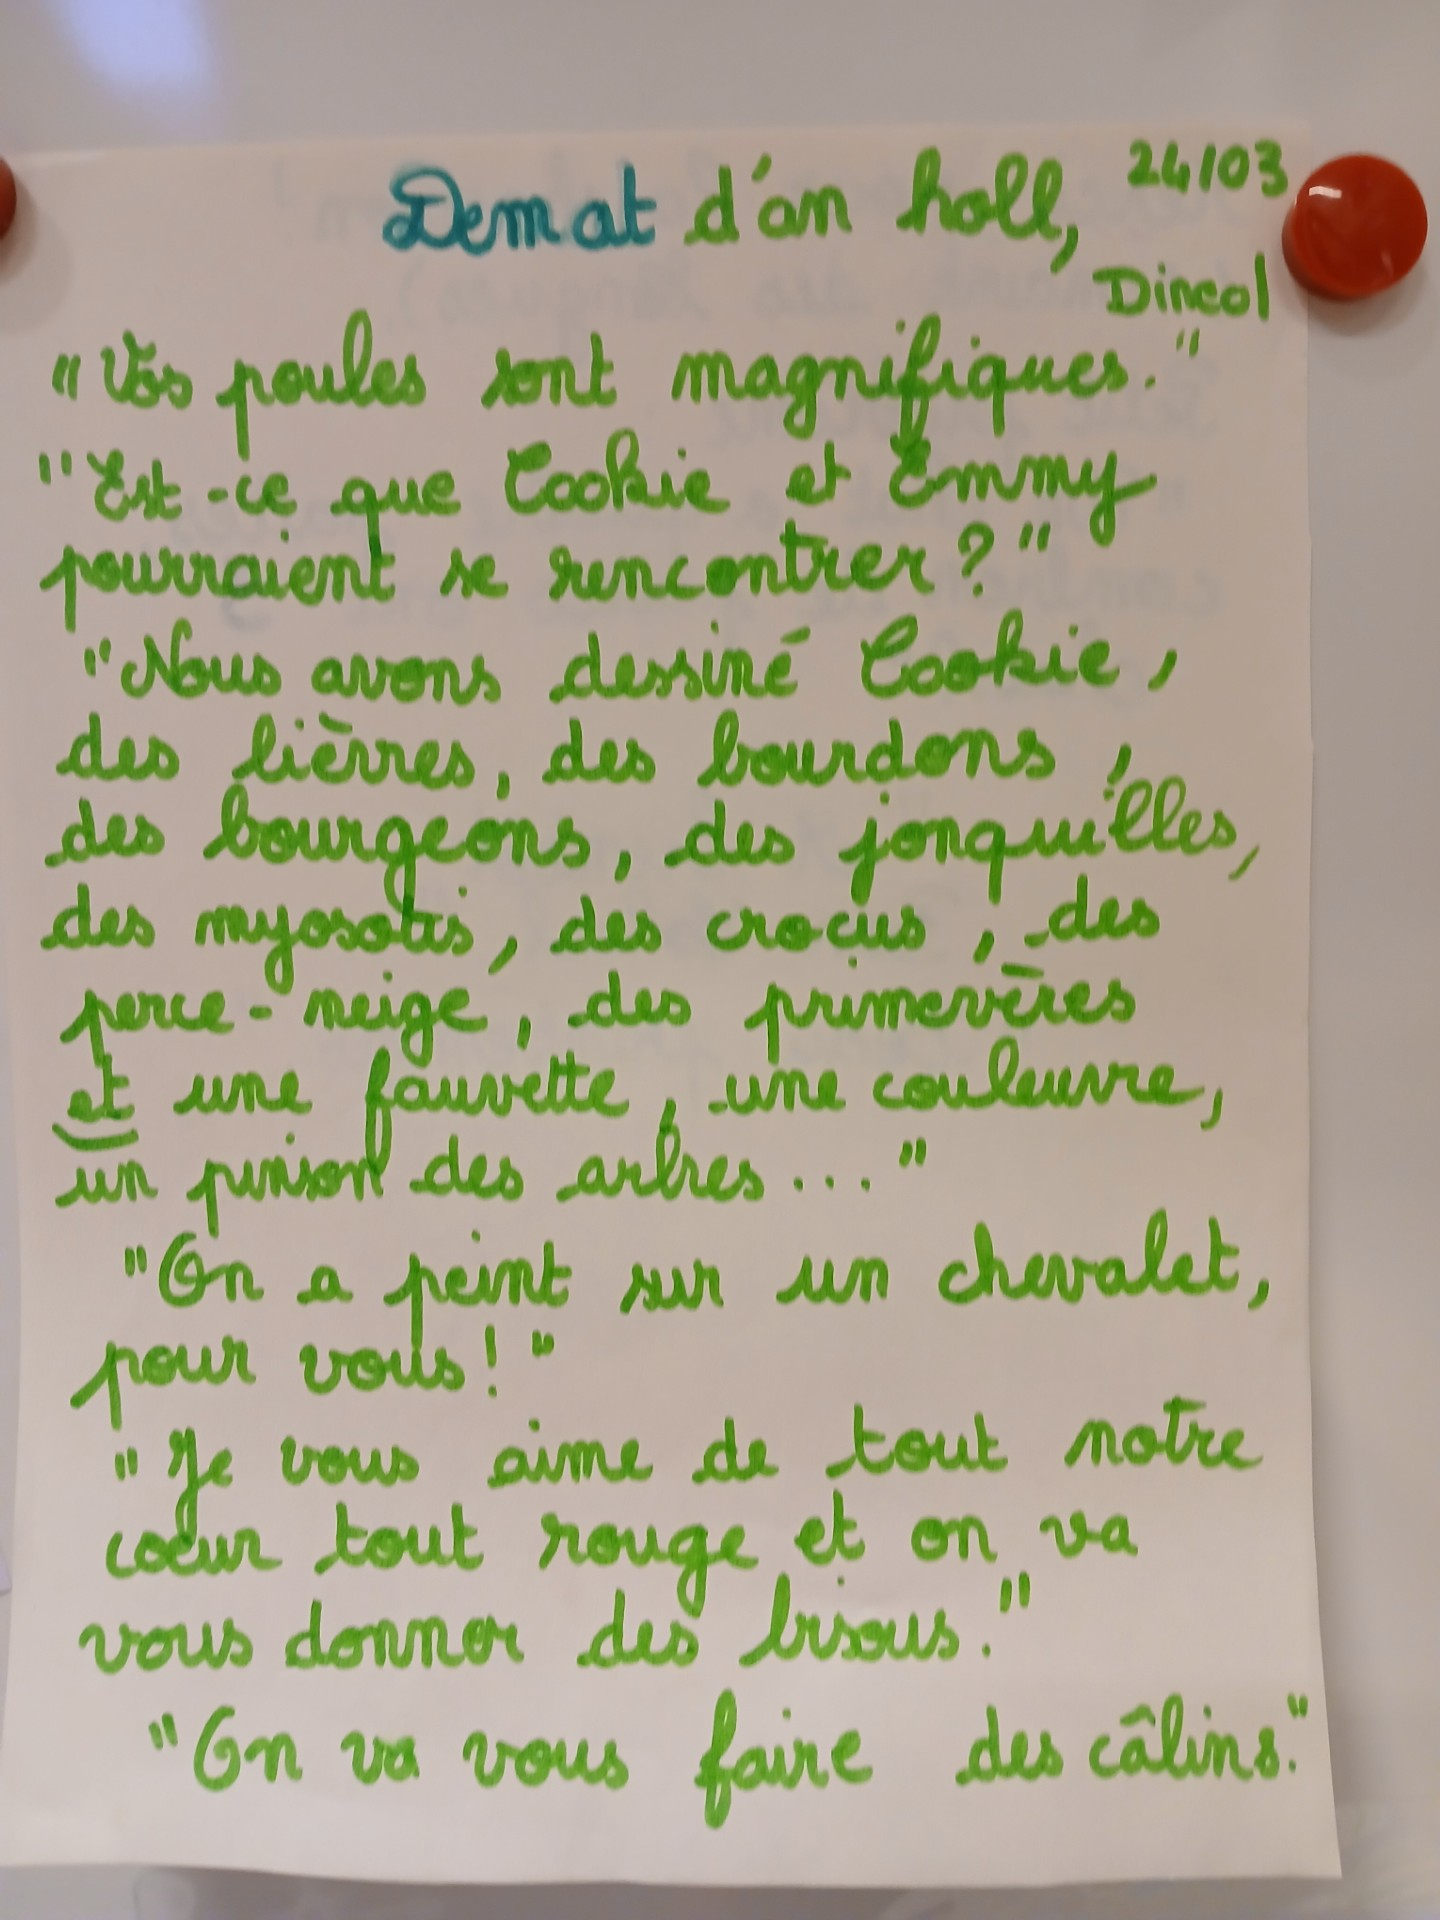 24/03
Demat d'an holl,
Dineol
"Vos poules sont magnifiques."
"Est-ce que Cookie et Emmy
pourraient se rencontrer ?"
"Nous avons dessiné Cookie,
des lièvres, des bourdons,
des bourgeons, des jonquilles,
des myosotis, des crocus, des
perce-neige, des primevères
et une fauvette, une couleuvre,
un pinson des arbres..."
"On a peint sur un chevalet,
pour vous !"
"Je vous aime de tout notre
coeur tout rouge et on va
vous donner des bisous."
"On va vous faire des câlins."